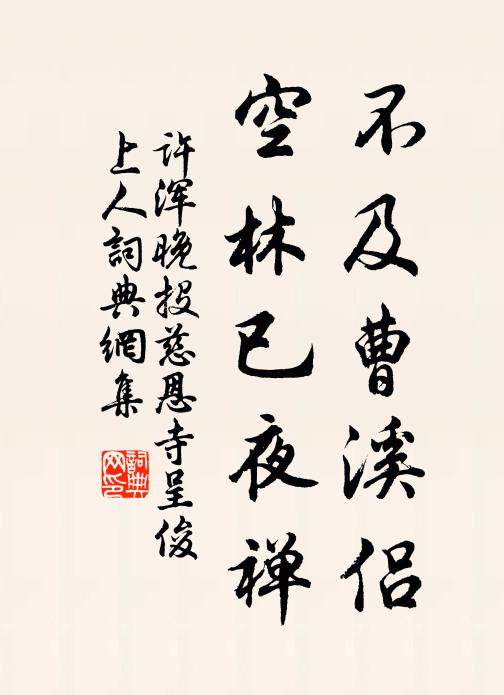 不及曹溪侣
空林已夜禅
许浑晚投慈恩寺呈俊
上人詞典網集
詞典
网印